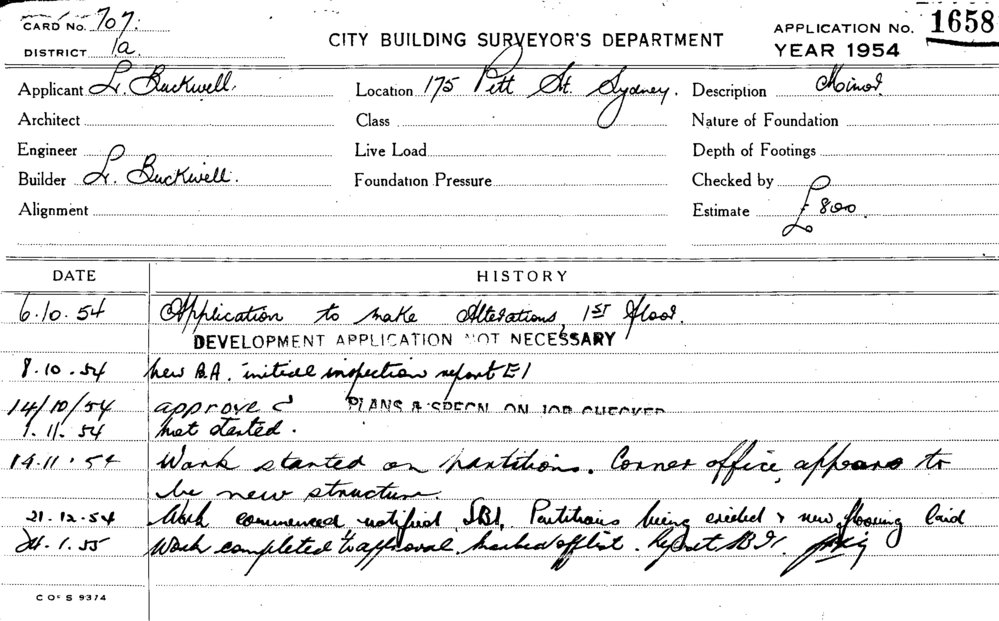 CARD No. 707.
DISTRICT 1a
CITY BUILDING SURVEYOR'S DEPARTMENT
APPLICATION No. 1658
YEAR 1954
Applicant L. Buckwell. Location 175 Pitt St. Sydney. Description Minor
Architect Class Nature of Foundation
Engineer Live Load Depth of Footings
Builder L. Buckwell. Foundation Pressure Checked by
Alignment Estimate £800
DATE HISTORY
6.10.54 Application to make Alterations, 1ST floor.
DEVELOPMENT APPLICATION NOT NECESSARY
8.10.54 New B.A. initial inspection report E1
14/10/54 approved PLANS & SPECN. ON JOB CHECKED
1.11.54 Not started.
19.11.54 Work started on partitions. Corner office, appears to
be new structure.
21.12.54 Work commenced, notified Partitions being erected & new flooring laid
24.1.55 Work completed to approval, marked off list. Report
C OF S 9374